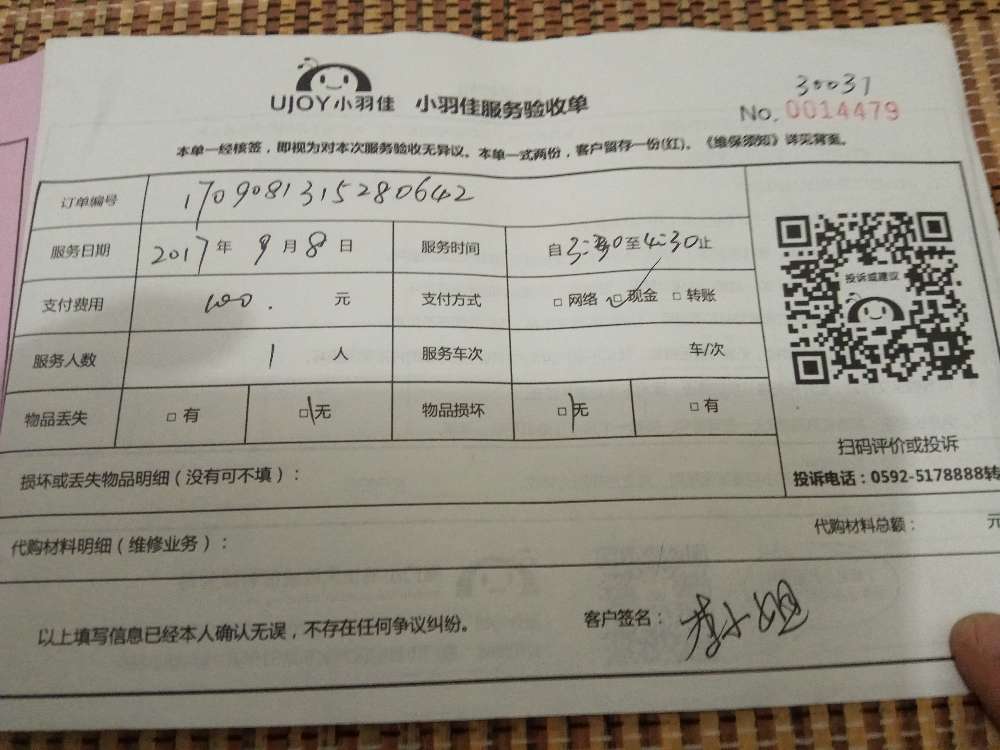 30037
UJOY小羽佳 小羽佳服务验收单 No. 0014479
本单一经核签，即视为对本次服务验收无异议。本单一式两份，客户留存一份(红)。《维保须知》详见背面。
订单编号 170908131528064​2
服务日期 2017年9月8日 服务时间 自3:30至4:30止
支付费用 100. 元 支付方式 □网络 □现金 □转账
服务人数 1人 服务车次 车/次
物品丢失 □有 □无 物品损坏 □无 □有
投诉或建议
扫码评价或投诉
投诉电话：0592-5178888转
损坏或丢失物品明细（没有可不填）：
代购材料明细（维修业务）： 代购材料总额： 元
以上填写信息已经本人确认无误，不存在任何争议纠纷。 客户签名： 小姐